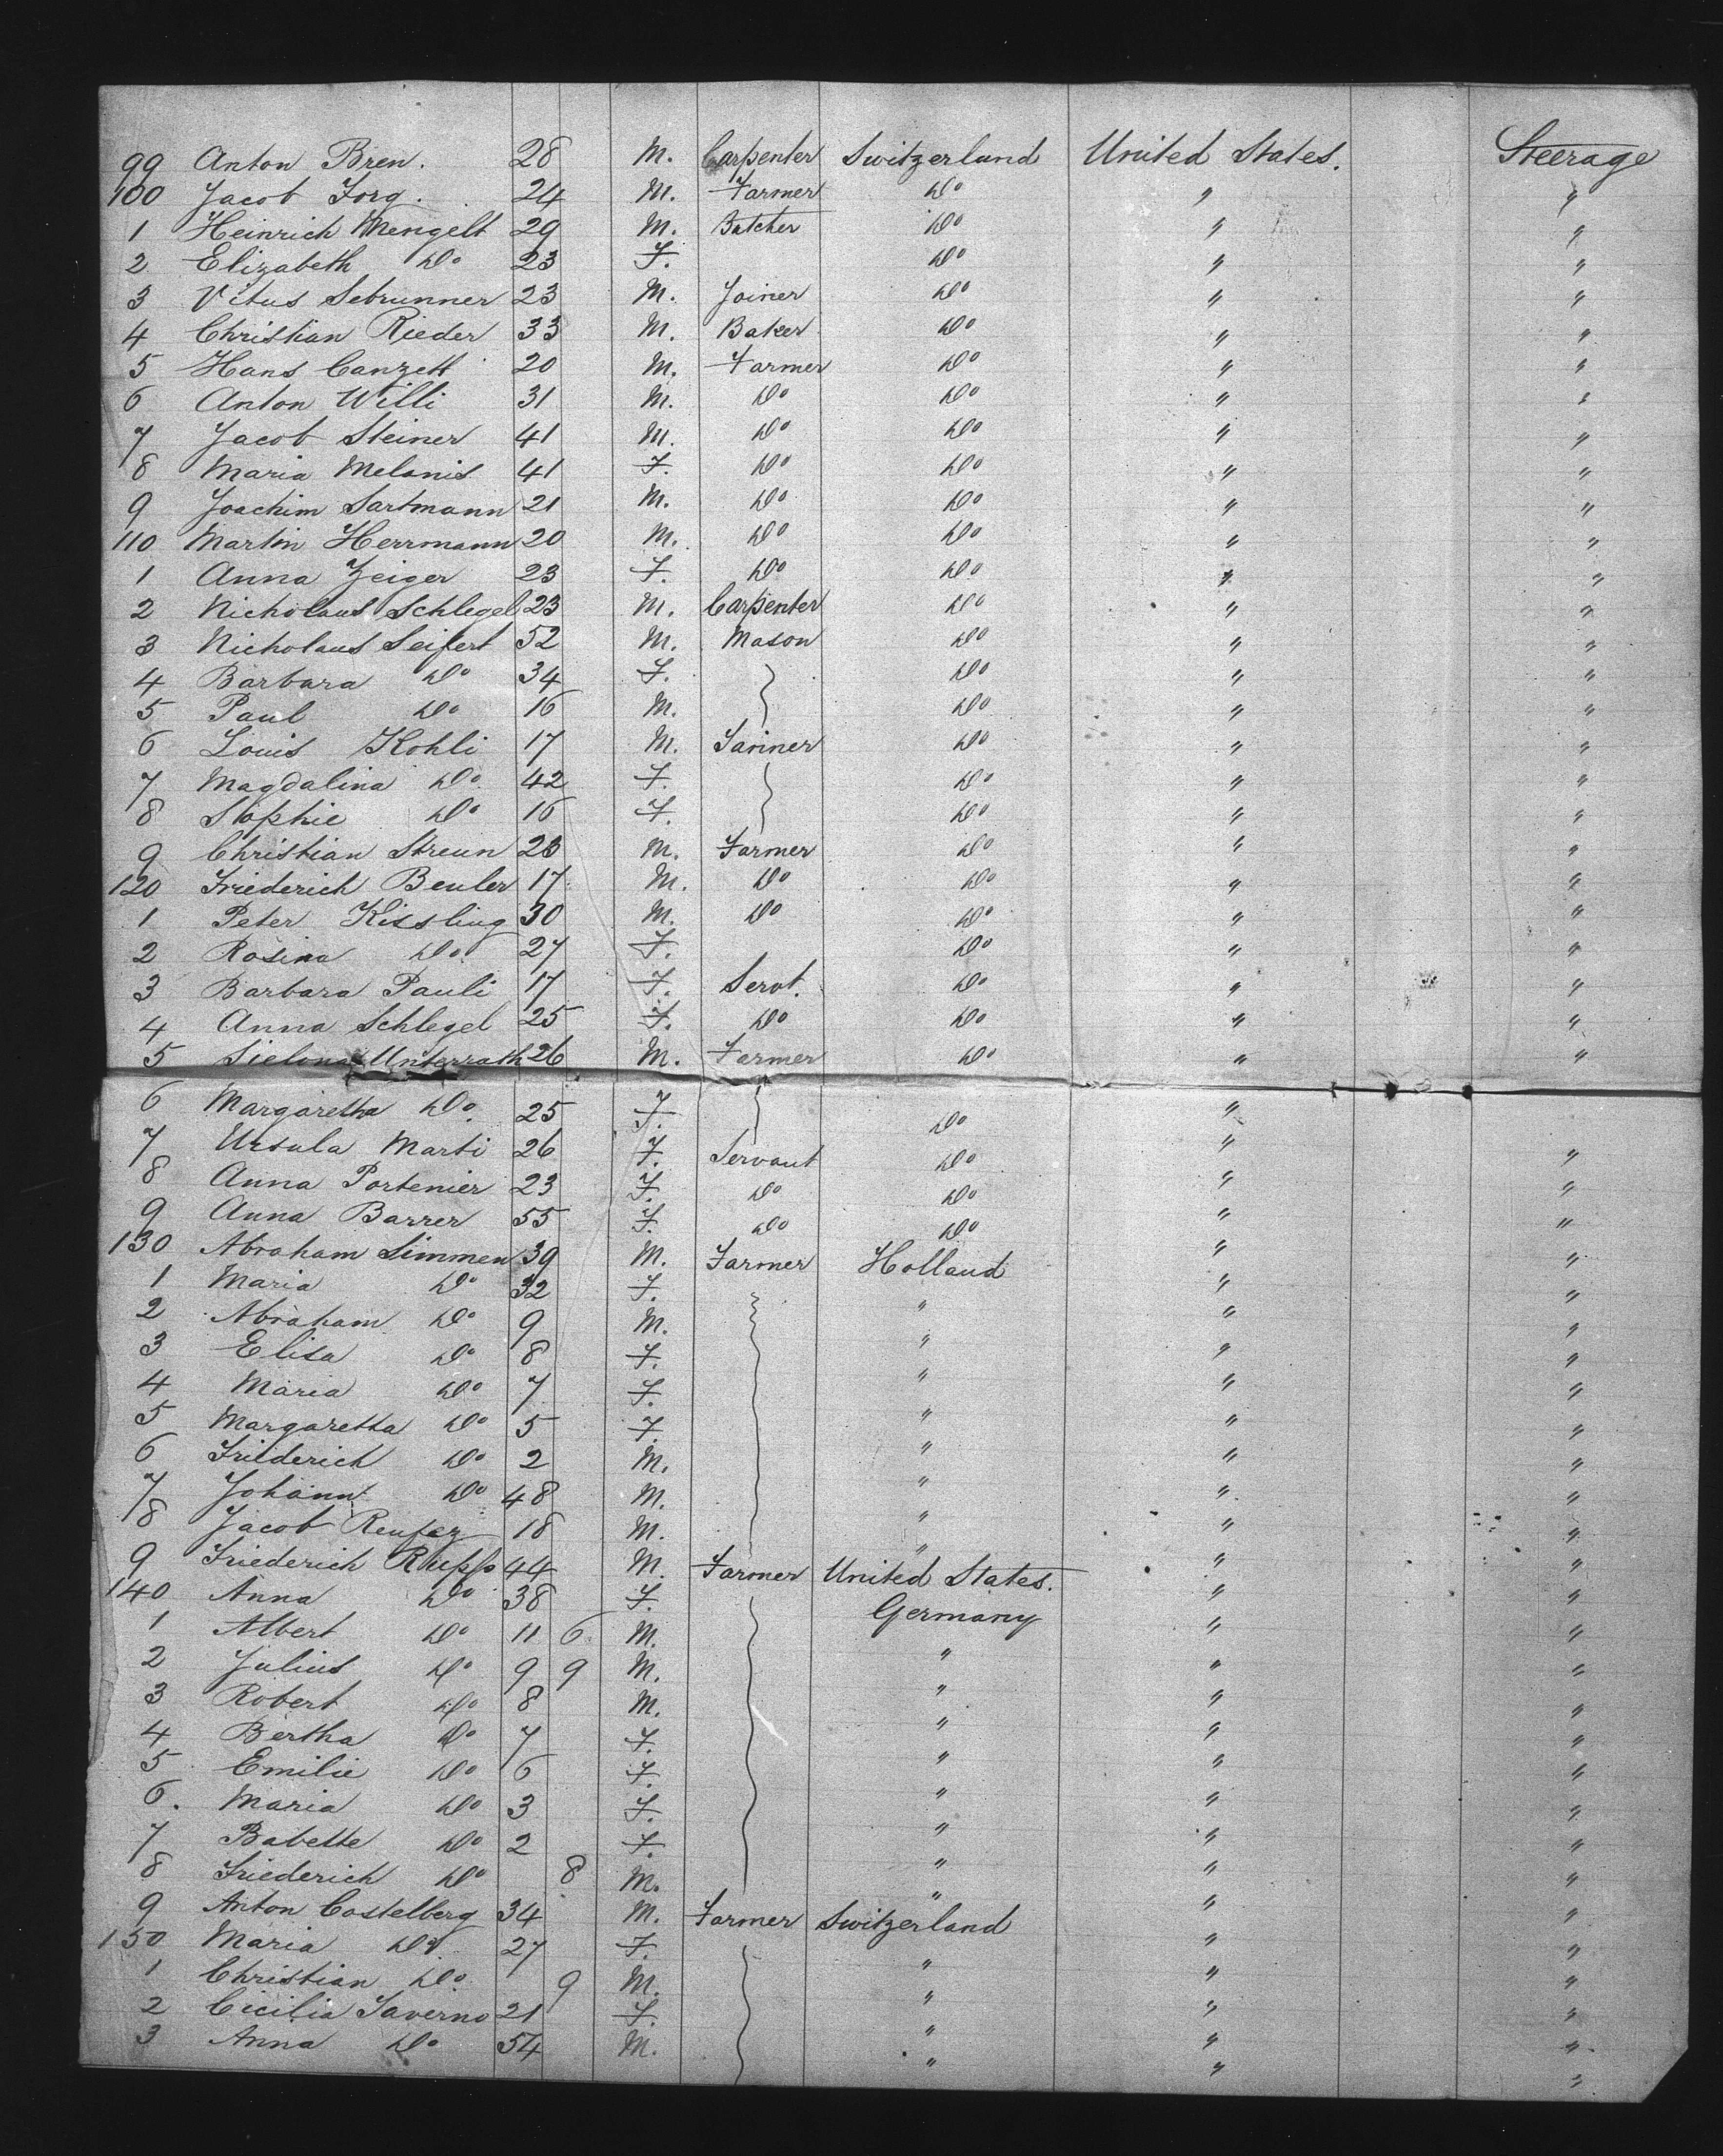 99 Anton Bren. 28 M. Carpenter Switzerland United States. Steerage
100 Jacob Jorg. 24 M. Farmer Do " "
1 Heinrich Mengelt 29 M. Butcher Do " "
2 Elizabeth Do 23 F. Do " "
3 Vitus Sebrunner 23 M. Joiner Do " "
4 Christian Rieder 33 M. Baker Do " "
5 Hans Canzett 20 M. Farmer Do " "
6 Anton Willi 31 M. Do Do " "
7 Jacob Steiner 41 M. Do Do " "
8 Maria Melanis 41 F. Do Do " "
9 Joachim Sartmann 21 M. Do Do " "
110 Martin Herrmann 20 M. Do Do " "
1 Anna Zeiger 23 F. Do Do " "
2 Nicholaus Schlegel 23 M. Carpenter Do " "
3 Nicholaus Seifert 52 M. Mason Do " "
4 Barbara Do 34 F. Do " "
5 Paul Do 16 M. Do " "
6 Louis Kohli 17 M. Farmer Do " "
7 Magdalina Do 42 F. Do " "
8 Sophie Do 16 F. Do " "
9 Christian Streun 23 M. Farmer Do " "
120 Friederich Beuler 17 M. Do Do " "
1 Peter Kissling 30 M. Do Do " "
2 Rosina Do 27 F. Do " "
3 Barbara Pauli 17 F. Servt. Do " "
4 Anna Schlegel 25 F. Do Do " "
5 Unterrath 26 M. Farmer Do " "
6 Margaretha Do 25 F. Do "
7 Ursula Marti 26 F. Servant Do " "
8 Anna Portenier 23 F. Do Do " "
9 Anna Barrer 55 F. Do Do " "
130 Abraham Simmen 39 M. Farmer Holland " "
1 Maria Do 32 F. " " "
2 Abraham Do 9 M. " " "
3 Elisa Do 8 F. " " "
4 Maria Do 7 F. " "
5 Margaretha Do 5 F. " " "
6 Friederich Do 2 M. " " "
7 Johann Do 48 M. " " "
8 Jacob 18 M. " " "
9 Friederich Rupp 44 M. Farmer United States. " "
140 Anna Do 38 F. Germany " "
1 Albert Do 11 6 M. " "
2 Julius Do 9 9 M. " " "
3 Robert Do 8 M. " " "
4 Bertha Do 7 F. " " "
5 Emilie Do 6 F. " " "
6. Maria Do 3 F. " " "
7 Babette Do 2 F. " " "
8 Friederich Do 8 M. " " "
9 Anton Castelberg 34 M. Farmer Switzerland " "
150 Maria Do 27 F. " " "
1 Christian Do 9 M. " " "
2 Cicilia Taverno 21 F. " " "
3 Anna Do 54 M. " " "